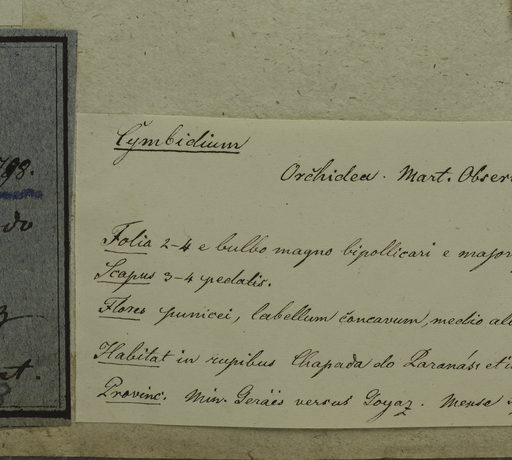 798.
do
Cymbidium
Orchidea. Mart. Obser
Folia 2-4 e bulbo magno bipollicari e major
Scapus 3-4 pedalis.
Flores punicei, labellum concavum, medio al
Habitat in rupibus Chapada do Paranáss et
Provinc. Min. Geräes versus Goyaz. Mense